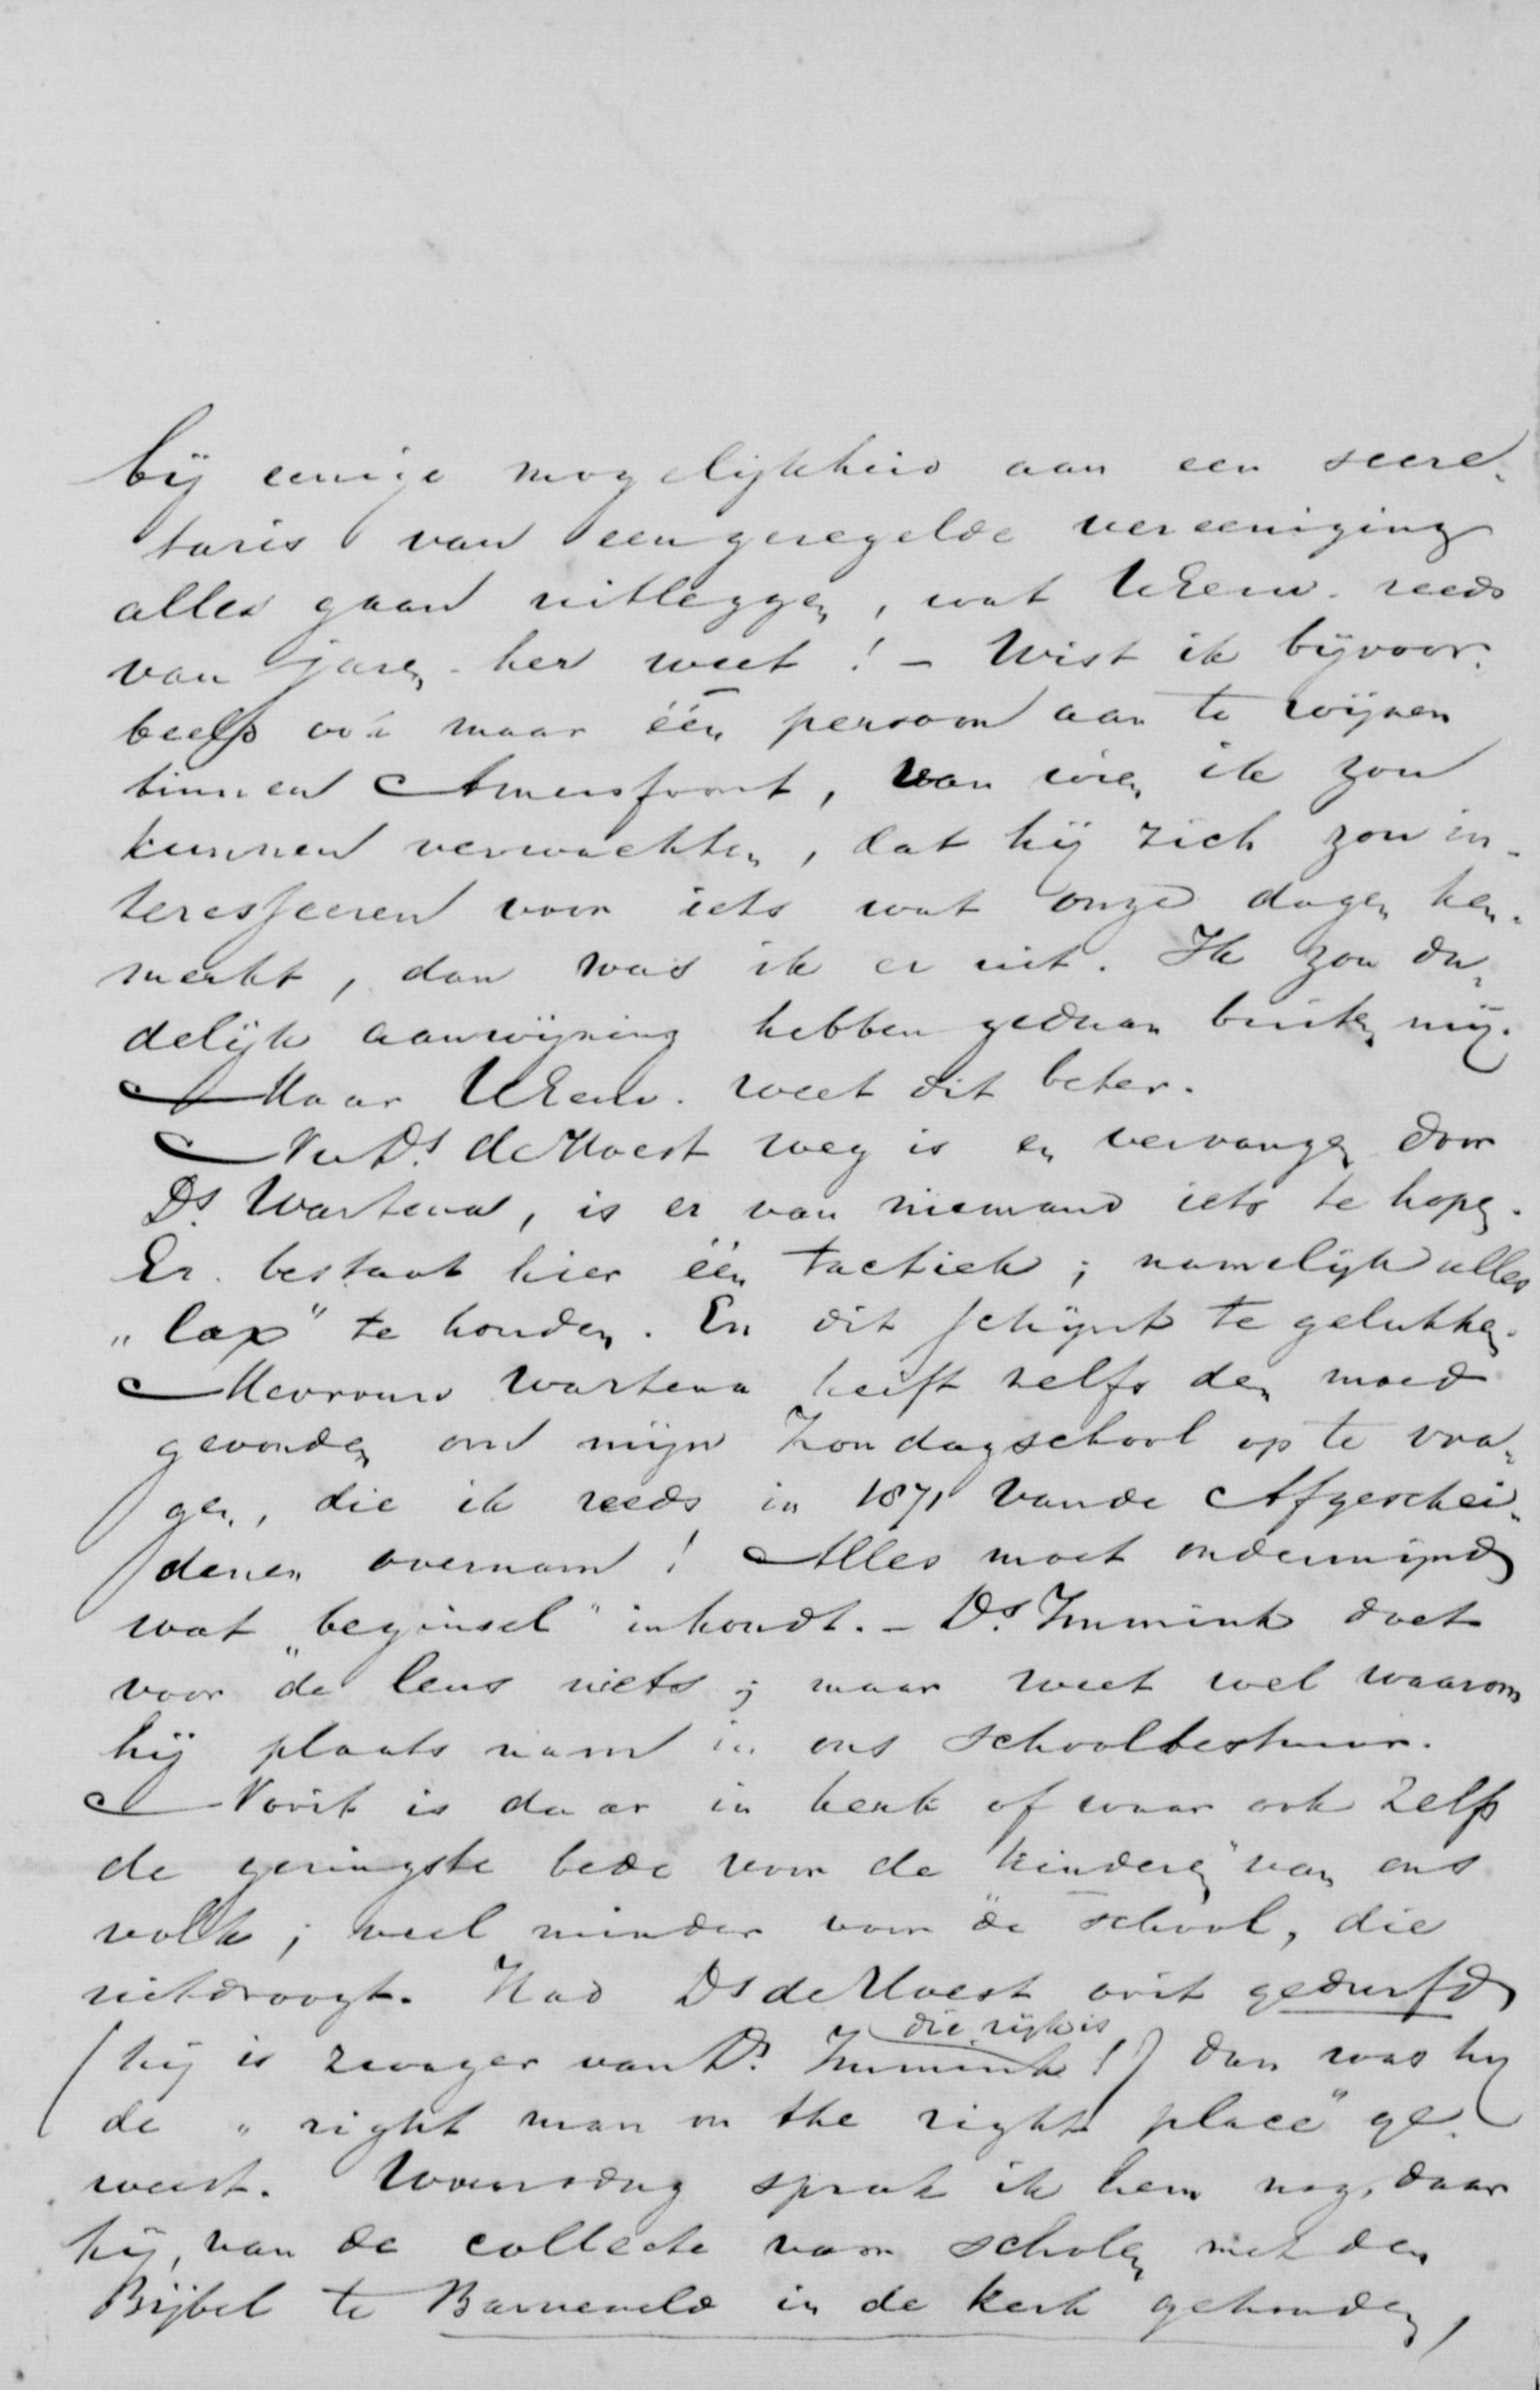 bij eenige mogelijkheid aan een secre-
taris van een geregelde vereeniging
alles gaan uitleggen, wat UEerw. reeds
van jaren her weet! - Wist ik bijvoor-
beeld ook maar één persoon aan te wijzen
binnen Amersfoort, van wien ik zou
kunnen verwachten, dat hij zich zou in-
teresseeren voor iets wat onze dagen ken-
merkt, dan was ik er uit. Ik zou da-
delijk aanwijzing hebben gedaan buiten mij.
Maar UEerw. weet dit beter.
Nu Ds. de Moest weg is en vervangen door
Ds. Wartena, is er van niemand iets te hopen.
Er bestaat hier één tactiek; namelijk alles
„lax" te houden. En dit schijnt te gelukken.
Mevrouw Wartena heeft zelfs den moed
gevonden om mijn Zondagschool op te vra-
gen, die ik reeds in 1871 van de Afgeschei-
denen overnam! Alles moet ondermijnd
wat „beginsel" inhoudt. - Ds. Immink doet
voor de leus iets; maar weet wel waarom
hij plaats nam in ons schoolbestuur.
Nooit is daar in kerk of waar ook zelfs
de geringste bede voor de „kinderen" van ons
volk; veel minder voor „de school, die
uitdroogt. Had Ds de Moest ooit gedurfd
(hij is zwager van Ds. Immink die rijk is!) dan was hij
de „right man in the right place" ge-
weest. Woensdag sprak ik hem nog, daar
hij, van de collecte voor scholen met den
Bijbel te Barneveld in de kerk gehouden,